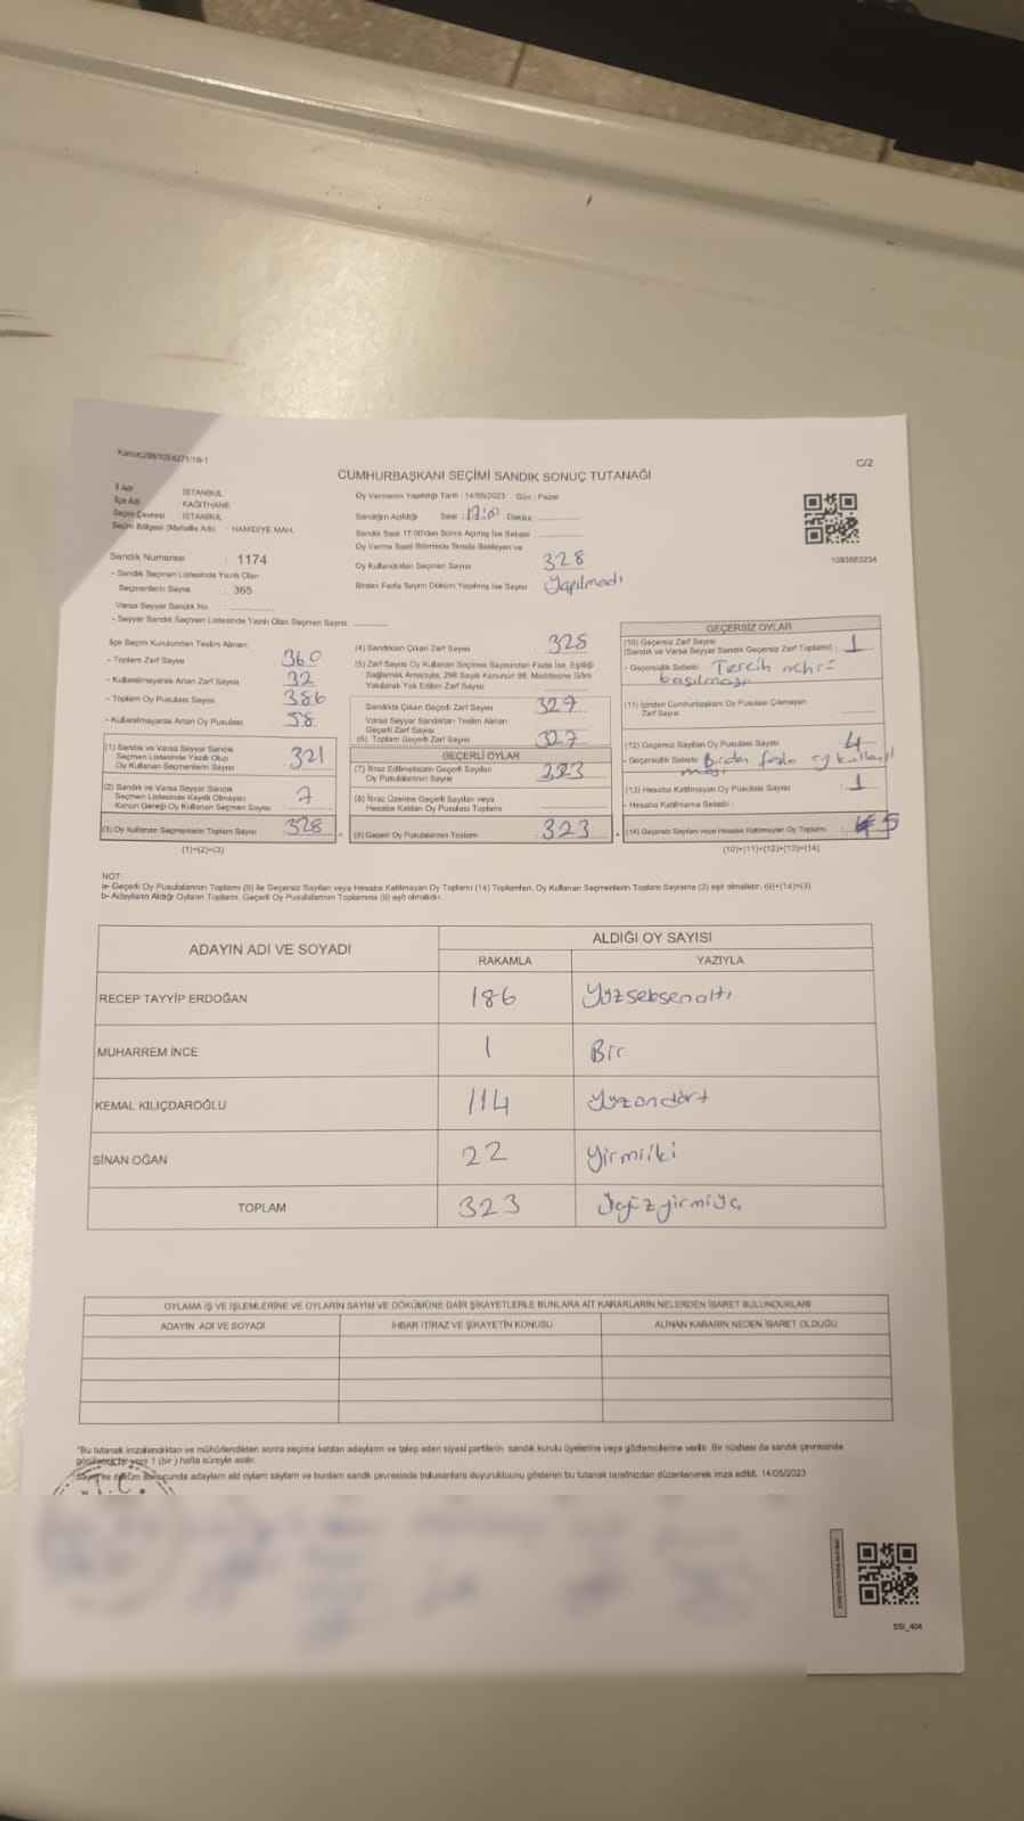 C/2
CUMHURBAŞKANI SEÇİMİ SANDIK SONUÇ TUTANAĞI
İl Adı : İSTANBUL
İlçe Adı : KAĞITHANE
Seçim Çevresi : İSTANBUL
Seçim Bölgesi (Mahalle Adı) : HAMİDİYE MAH.
Oy Vermenin Yapıldığı Tarih : 14/05/2023 Gün : Pazar
Sandığın Açıldığı Saat : 17:00 Dakika
Sandık Saat 17:00'dan Sonra Açılmış İse Sebebi
Oy Verme Saati Bitiminde Sırada Bekleyen ve
Oy Kullandırılan Seçmen Sayısı 328
Birden Fazla Sayım Döküm Yapılmış İse Sayısı Yapılmadı
Sandık Numarası : 1174
- Sandık Seçmen Listesinde Yazılı Olan
Seçmenlerin Sayısı : 365
Varsa Seyyar Sandık No
- Seyyar Sandık Seçmen Listesinde Yazılı Olan Seçmen Sayısı
İlçe Seçim Kurulundan Teslim Alınan
- Toplam Zarf Sayısı 360
- Kullanılmayarak Artan Zarf Sayısı 32
- Toplam Oy Pusulası Sayısı 386
- Kullanılmayarak Artan Oy Pusulası 58
(1) Sandık ve Varsa Seyyar Sandık
Seçmen Listesinde Yazılı Olup
Oy Kullanan Seçmenlerin Sayısı 321
(2) Sandık ve Varsa Seyyar Sandık
Seçmen Listesinde Kayıtlı Olmayıp
Kanun Gereği Oy Kullanan Seçmen Sayısı 7
(3) Oy Kullanan Seçmenlerin Toplam Sayısı 328
(1)+(2)=(3)
(4) Sandıktan Çıkan Zarf Sayısı 328
(5) Zarf Sayısı Oy Kullanan Seçmen Sayısından Fazla İse, Eşitliği
Sağlamak Amacıyla, 298 Sayılı Kanunun 98. Maddesine Göre
Yakılarak Yok Edilen Zarf Sayısı
Sandıkta Çıkan Geçerli Zarf Sayısı 327
Varsa Seyyar Sandıktan Teslim Alınan
Geçerli Zarf Sayısı
(6) Toplam Geçerli Zarf Sayısı 327
GEÇERLİ OYLAR
(7) İtiraz Edilmeksizin Geçerli Sayılan
Oy Pusulalarının Sayısı 323
(8) İtiraz Üzerine Geçerli Sayılan veya
Hesaba Katılan Oy Pusulası Toplamı
(9) Geçerli Oy Pusulalarının Toplamı 323
GEÇERSİZ OYLAR
(10) Geçersiz Zarf Sayısı
(Sandık ve Varsa Seyyar Sandık Geçersiz Zarf Toplamı) 1
- Geçersizlik Sebebi Tercih mührü
basılması
(11) İçinden Cumhurbaşkanı Oy Pusulası Çıkmayan
Zarf Sayısı
(12) Geçersiz Sayılan Oy Pusulası Sayısı 4
- Geçersizlik Sebebi Birden fazla oy kullanıl
ması
(13) Hesaba Katılmayan Oy Pusulası Sayısı 1
- Hesaba Katılmama Sebebi
(14) Geçersiz Sayılan veya Hesaba Katılmayan Oy Toplamı 5
(10)+(11)+(12)+(13)=(14)
NOT:
a- Geçerli Oy Pusulalarının Toplamı (9) ile Geçersiz Sayılan veya Hesaba Katılmayan Oy Toplamı (14) Toplamları, Oy Kullanan Seçmenlerin Toplam Sayısına (3) eşit olmalıdır. (9)+(14)=(3)
b- Adayların Aldığı Oyların Toplamı, Geçerli Oy Pusulalarının Toplamına (9) eşit olmalıdır.
ADAYIN ADI VE SOYADI
ALDIĞI OY SAYISI
RAKAMLA YAZIYLA
RECEP TAYYİP ERDOĞAN 186 Yüzseksenaltı
MUHARREM İNCE 1 Bir
KEMAL KILIÇDAROĞLU 114 Yüzondört
SİNAN OĞAN 22 Yirmiiki
TOPLAM 323 Üçyüzyirmiüç
OYLAMA İŞ VE İŞLEMLERİNE VE OYLARIN SAYIM VE DÖKÜMÜNE DAİR ŞİKAYETLERLE BUNLARA AİT KARARLARIN NELERDEN İBARET BULUNDUKLARI
ADAYIN ADI VE SOYADI İHBAR İTİRAZ VE ŞİKAYETİN KONUSU ALINAN KARARIN NEDEN İBARET OLDUĞU
*Bu tutanak imzalandıktan ve mühürlendikten sonra seçime katılan adayların ve talep eden siyasi partilerin sandık kurulu üyelerine veya gözlemcilerine verilir. Bir nüshası da sandık çevresinde
1 (bir) hafta süreyle asılır.
sonucunda adayların aldı oyların sayıları ve bunların sandık çevresinde bulunanlara duyurulduğunu gösteren bu tutanak tarafımızdan düzenlenerek imza edildi. 14/05/2023
T.C.
SSI_404